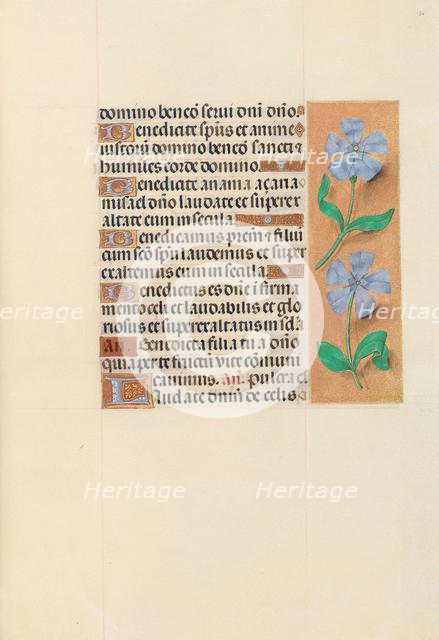 domino benedō servi dnī dño.
Benedicite spūs et anime
iustorū domino benedō sancti ⁊
humiles corde domino.
Benedicite anania açaria
misael dño laudate et superex
altate eum in secula.
Benedicamus prem̄ ⁊ filiū
cum scō spū laudemus et super
exaltemus eum in secula.
Benedictus es dñe i firma
mento celi et laudabilis et glo
riosus et superexaltatus in scła
An. Benedicta filia tu a dño
quia per te fructū vite cōmuni
cavimus. An. Pulcra es
Laudate dnm̄ de celis
Heritage
Heritage
Heritage
Heritage
Heritage
Heritage